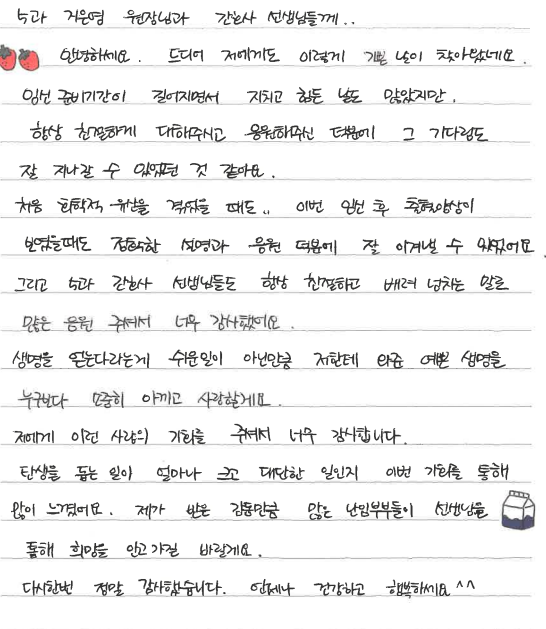 5과 거은영 원장님과 간호사 선생님들께..
안녕하세요. 드디어 저에게도 이렇게 기쁜 날이 찾아왔네요.
임신 준비기간이 길어지면서 지치고 힘든 날도 많았지만,
항상 친절하게 대해주시고 응원해주신 덕분에 그 기다림도
잘 지나갈 수 있었던 것 같아요.
처음 화학적 유산을 겪었을 때도.. 이번 임신 후 출혈양상이
보였을때도 정확한 설명과 응원 덕분에 잘 이겨낼 수 있었어요.
그리고 5과 간호사 선생님들도 항상 친절하고 배려 넘치는 말로
많은 응원 주셔서 너무 감사했어요.
생명을 얻는다라는게 쉬운일이 아닌만큼 저한테 와준 예쁜 생명을
누구보다 소중히 아끼고 사랑할게요.
저에게 이런 사랑의 기회를 주셔서 너무 감사합니다.
탄생을 돕는 일이 얼마나 크고 대단한 일인지 이번 기회를 통해
많이 느꼈어요. 제가 받은 감동만큼 많은 난임부부들이 선생님을
통해 희망을 안고가길 바랄게요.
다시한번 정말 감사했습니다. 언제나 건강하고 행복하세요^^